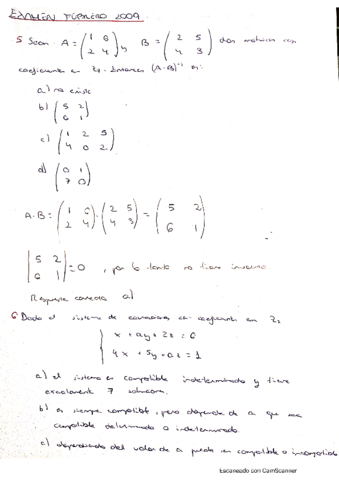 EXAMEN FEBRERO 2009
5 Sean A = (1 6 / 2 4) y B = (2 5 / 4 3) dos matrices con
coeficientes en Z₇. Entonces (A·B)⁻¹ es:
a) no existe
b) (5 2 / 6 1)
c) (1 2 5 / 4 0 2)
d) (0 1 / 7 0)
A·B = (1 6 / 2 4) · (2 5 / 4 3) = (5 2 / 6 1)
|5 2 / 6 1| = 0, por lo tanto no tiene inversa
Respuesta correcta a)
6 Dado el sistema de ecuaciones con coeficientes en Z₇
{ x + ay + 2z = 0
4x + 5y + az = 1
a) el sistema es compatible indeterminado y tiene
exactamente 7 soluciones.
b) es siempre compatible, pero depende de a que sea
compatible determinado o indeterminado.
c) dependiendo del valor de a puede ser compatible o incompatible
Escaneado con CamScanner